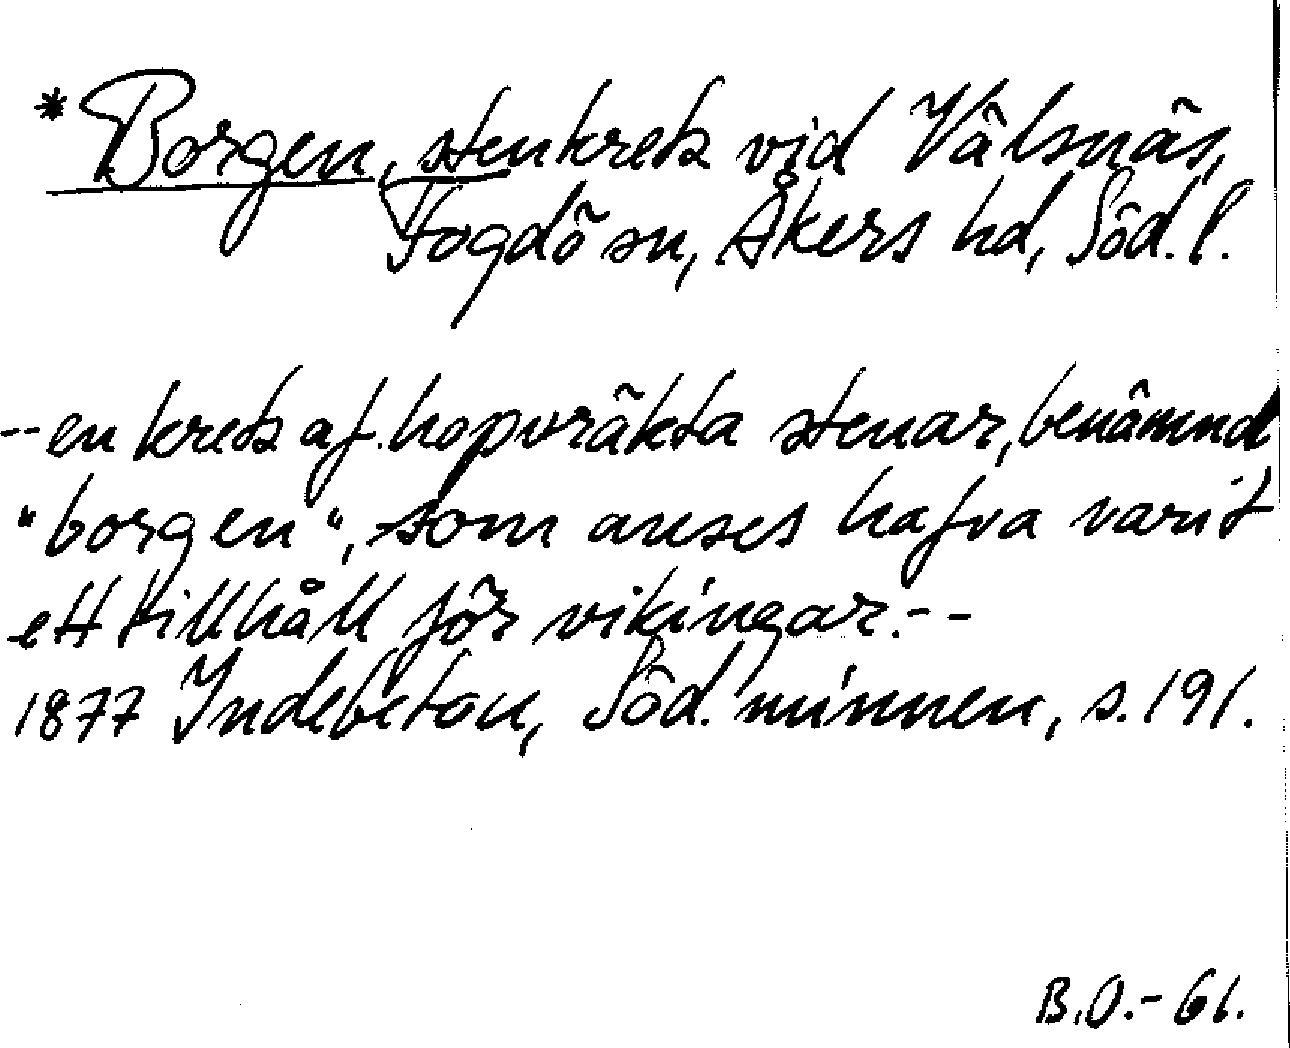 *Borgen, stenkrets vid Välsnäs,
Fogdö sn, Åkers hd, Söd.l.
--en krets af hopvräkta stenar, benämnd
"borgen", som anses hafva varit
ett tillhåll för vikingar.--
1877 Indebetou, Söd. minnen, s.191.
B.O.-61.